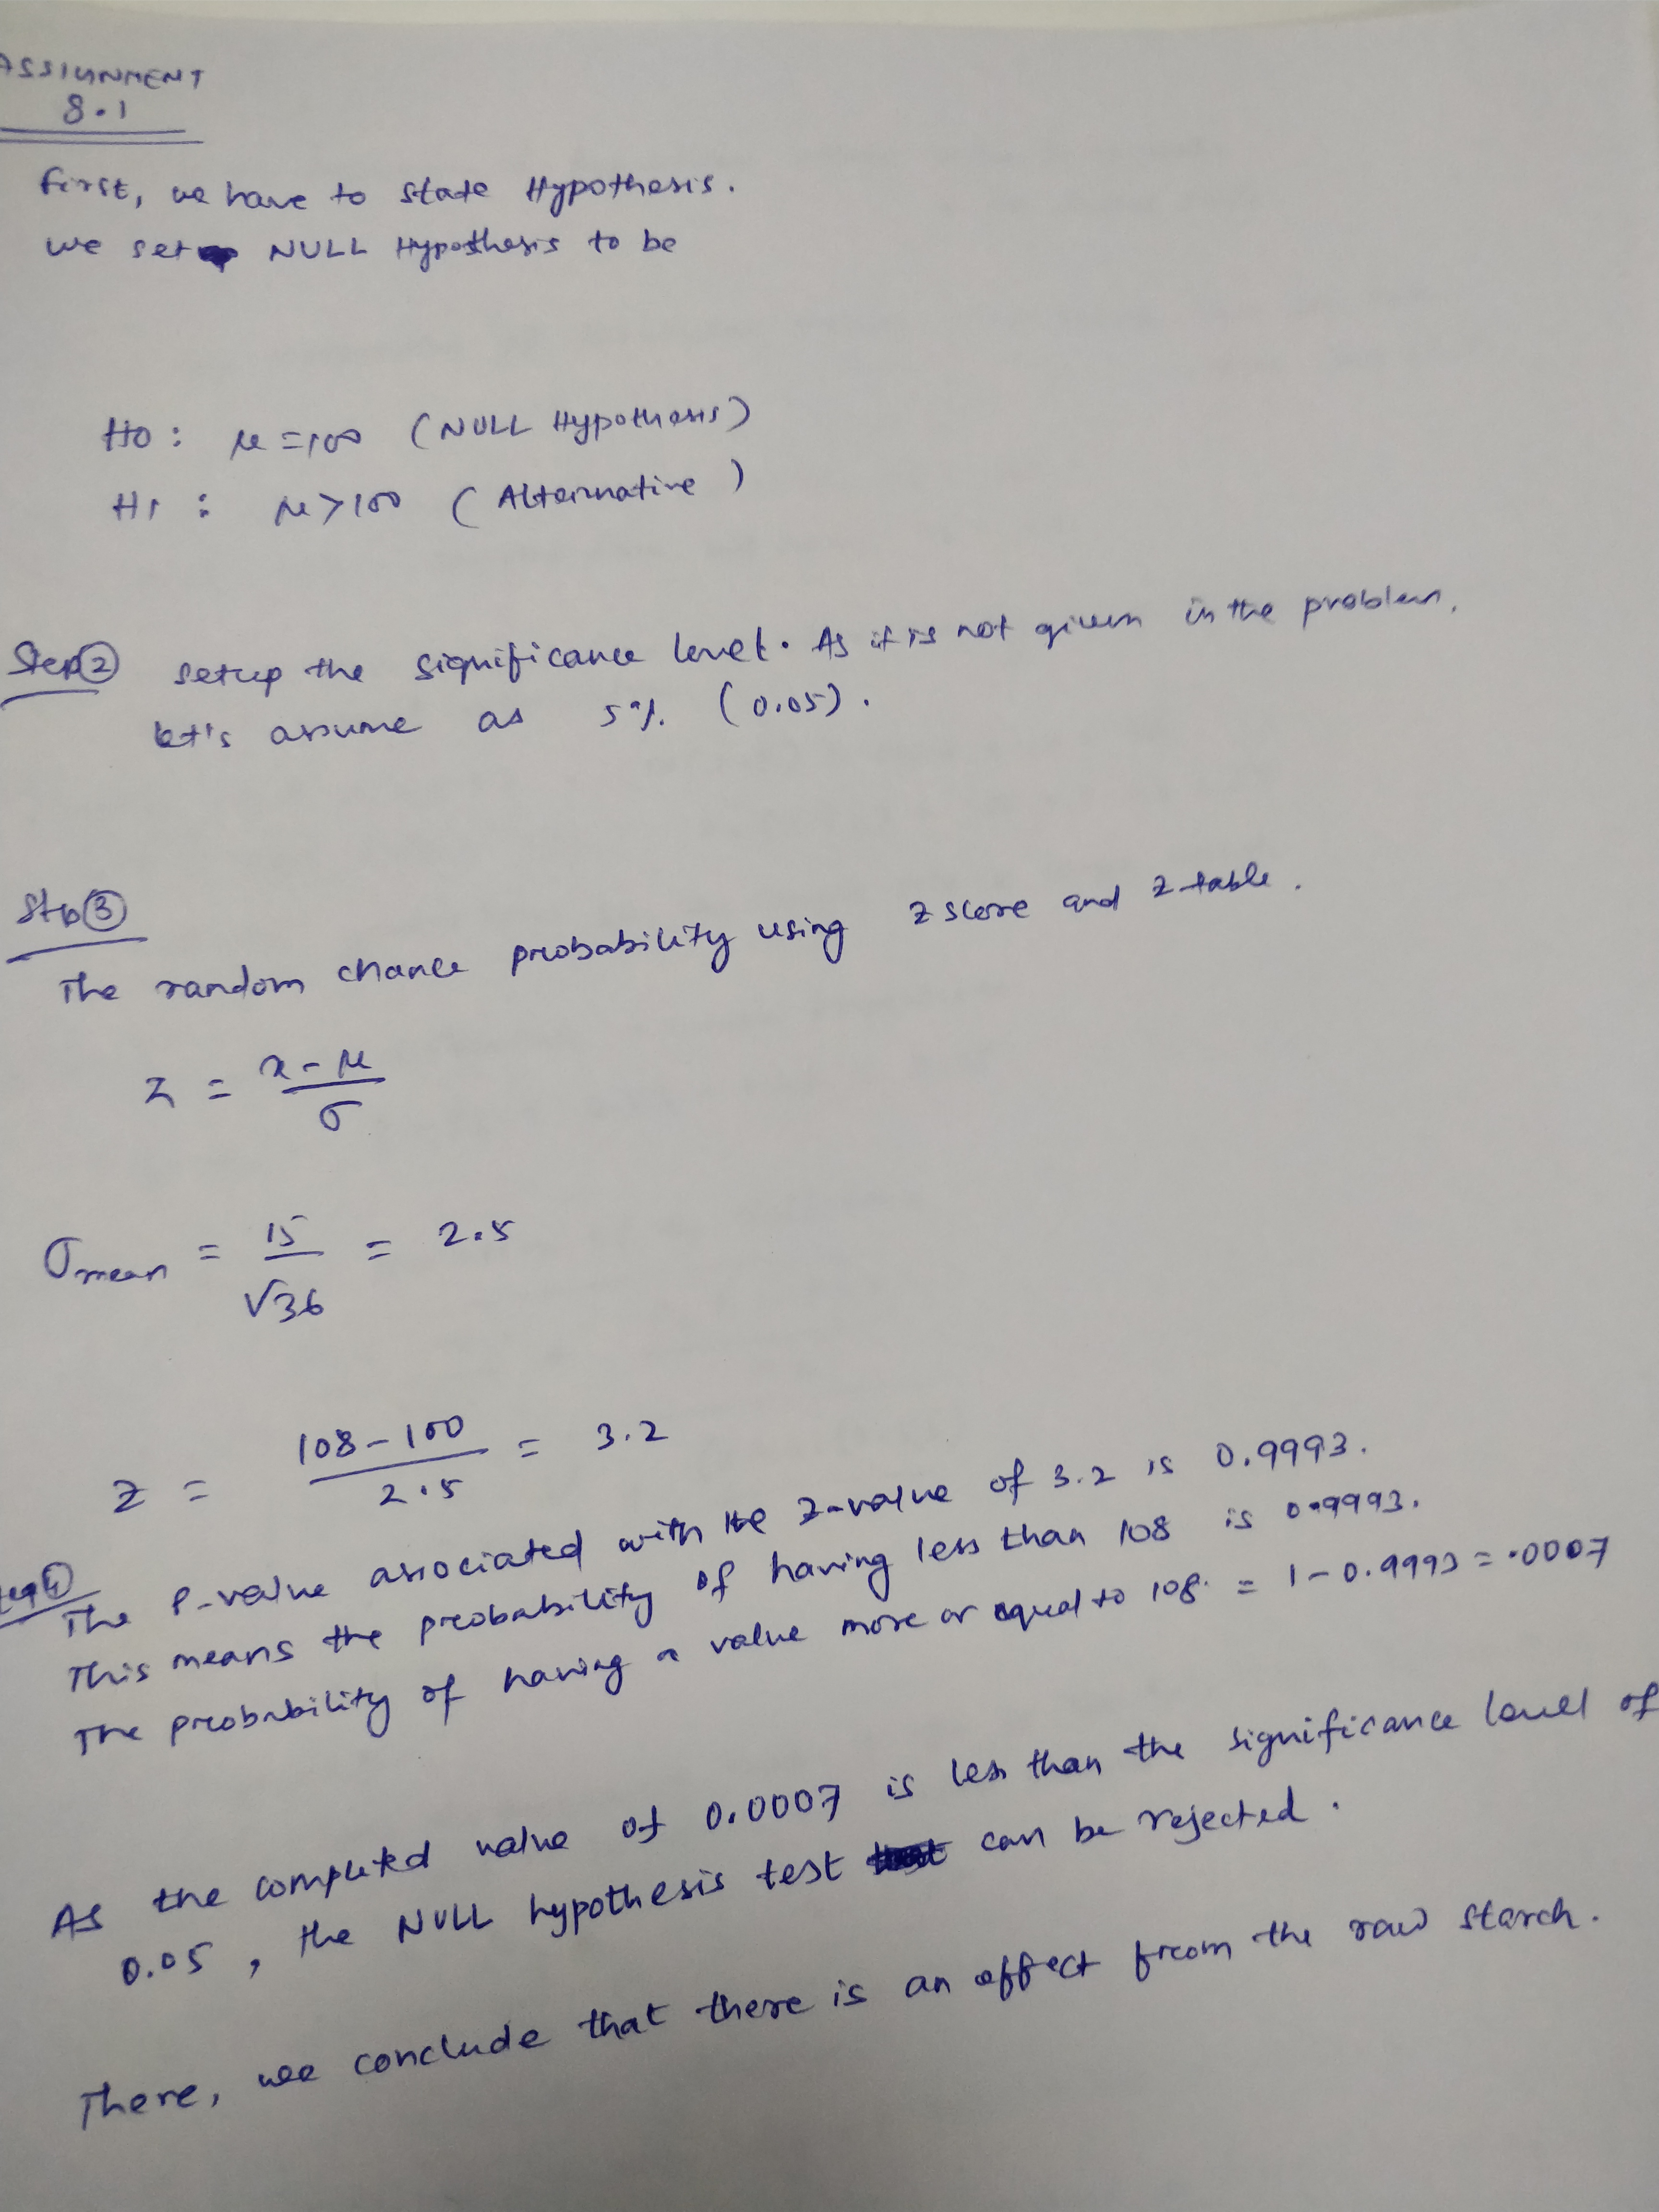 ASSIGNMENT
8.1
First, we have to state Hypothesis.
we set NULL Hypothesis to be
H0 : μ = 100 (NULL Hypothesis)
H1 : μ > 100 (Alternative)
Step 2 setup the significance level. As it is not given in the problem,
let's assume as 5% (0.05).
Step 3
The random chance probability using z score and z-table.
z = (x - μ) / σ
σmean = 15 / √36 = 2.5
z = (108 - 100) / 2.5 = 3.2
Step 4
The P-value associated with the z-value of 3.2 is 0.9993.
This means the probability of having less than 108 is 0.9993.
The probability of having a value more or equal to 108. = 1 - 0.9993 = .0007
As the completed value of 0.0007 is less than the significance level of
0.05, the NULL hypothesis test can be rejected.
There, we conclude that there is an effect from the raw starch.